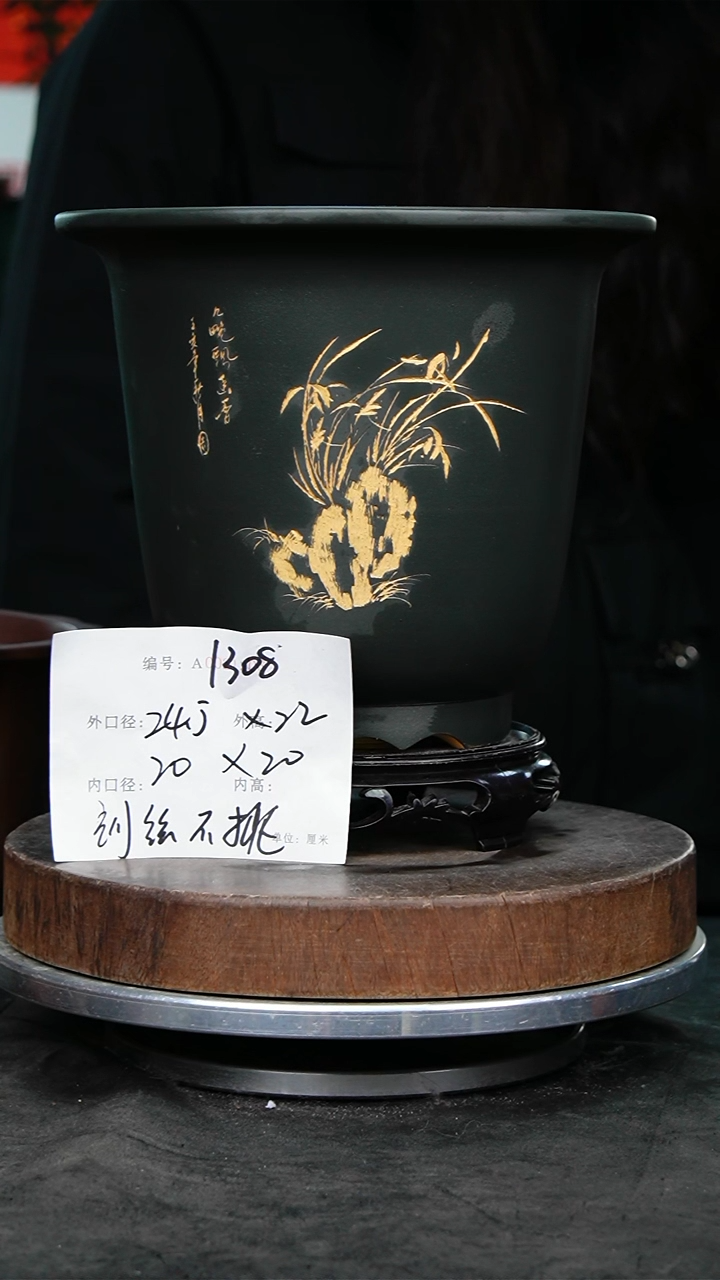 九畹飘幽香
编号: A 1308
外口径: 24.5 外高: ×22
内口径: 20 ×20 内高:
划丝不挑 单位: 厘米